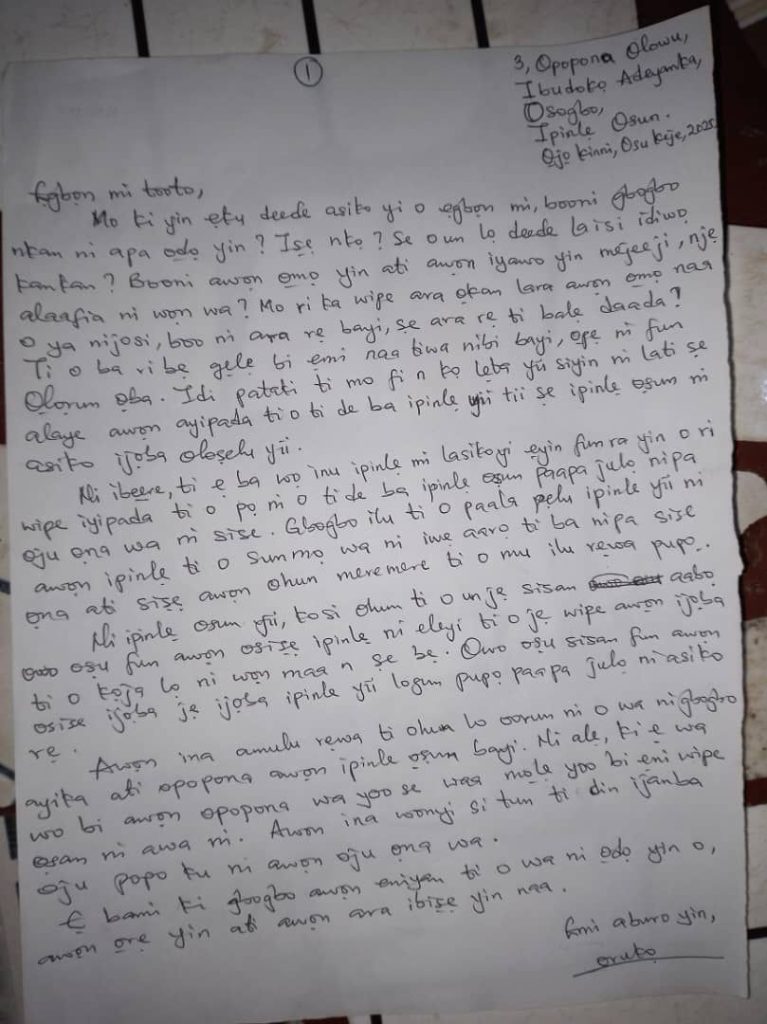 1
3, Opopona Olowu,
Ibudokọ Adeyanka,
Osogbo,
Ipinlẹ Osun.
Ọjọ kinni, Osu Keje, 2025.
Ẹgbọn mi tooto,
Mo ki yin ẹku deede asiko yi o ẹgbọn mi, booni gbogbo
nkan ni apa ọdọ yin? Isẹ nkọ? Se o un lọ deede laisi idiwọ
kankan? Booni awọn ọmọ yin ati awọn iyawo yin mejeeji, njẹ
alaafia ni wọn wa? Mo ri ka wipe ara ọkan lara awọn ọmọ naa
o ya nijosi, boo ni ara rẹ bayi, sẹ ara rẹ ti balẹ daada?
Ti o ba ri bẹ gẹlẹ bi ẹmi naa tiwa nibi bayi, ọpẹ ni fun
Olọrun ọba. Idi patati ti mo fi n kọ lẹta yii siyin ni lati sẹ
alaye awọn ayipada ti o ti de ba ipinlẹ yii tii se ipinlẹ ọsun ni
asiko ijọba oloselu yii.
Ni ibẹẹrẹ, ti ẹ ba wo inu ipinlẹ mi lasikoyi ẹyin funra yin o ri
wipe iyipada ti o pọ ni o ti de ba ipinlẹ ọsun paapa julọ nipa
oju ọna wa ni sise. Gbogbo ilu ti o paala pẹlu ipinlẹ yii ni
awọn ipinlẹ ti o sunmọ wa ni iwẹ aarọ ti ba nipa sise
ọna ati sisẹ awọn ohun meremere ti o mu ilu rẹwa pupọ.
Ni ipinlẹ ọsun yii, kosi ohun ti o unjẹ sisan aabọ
owo osu fun awọn osisẹ ipinlẹ ni eleyi ti o jẹ wipe awọn ijọba
ti o kọja lọ ni wọn maa n sẹ bẹ. Owo ọsu sisan fun awọn
osise ijọba jẹ ijọba ipinlẹ yii logun pupọ paapa julọ ni asiko
rẹ.
Awọn ina amulu rẹwa ti ohun lo oorun ni o wa ni gbogbo
ayika ati opopona awọn ipinle ọsun bayi. Ni alẹ, ki ẹ wa
wo bi awọn opopona wa yoo se waa mọlẹ yoo bi eni wipe
ọsan ni awa ni. Awọn ina woonyi si tun ti din ijanba
oju popo ku ni awọn oju ọna wa.
Ẹ bami ki gbogbo awọn eniyan ti o wa ni ọdọ yin o,
awọn ọrẹ yin ati awọn ara ibisẹ yin naa.
Emi aburo yin,
orukọ